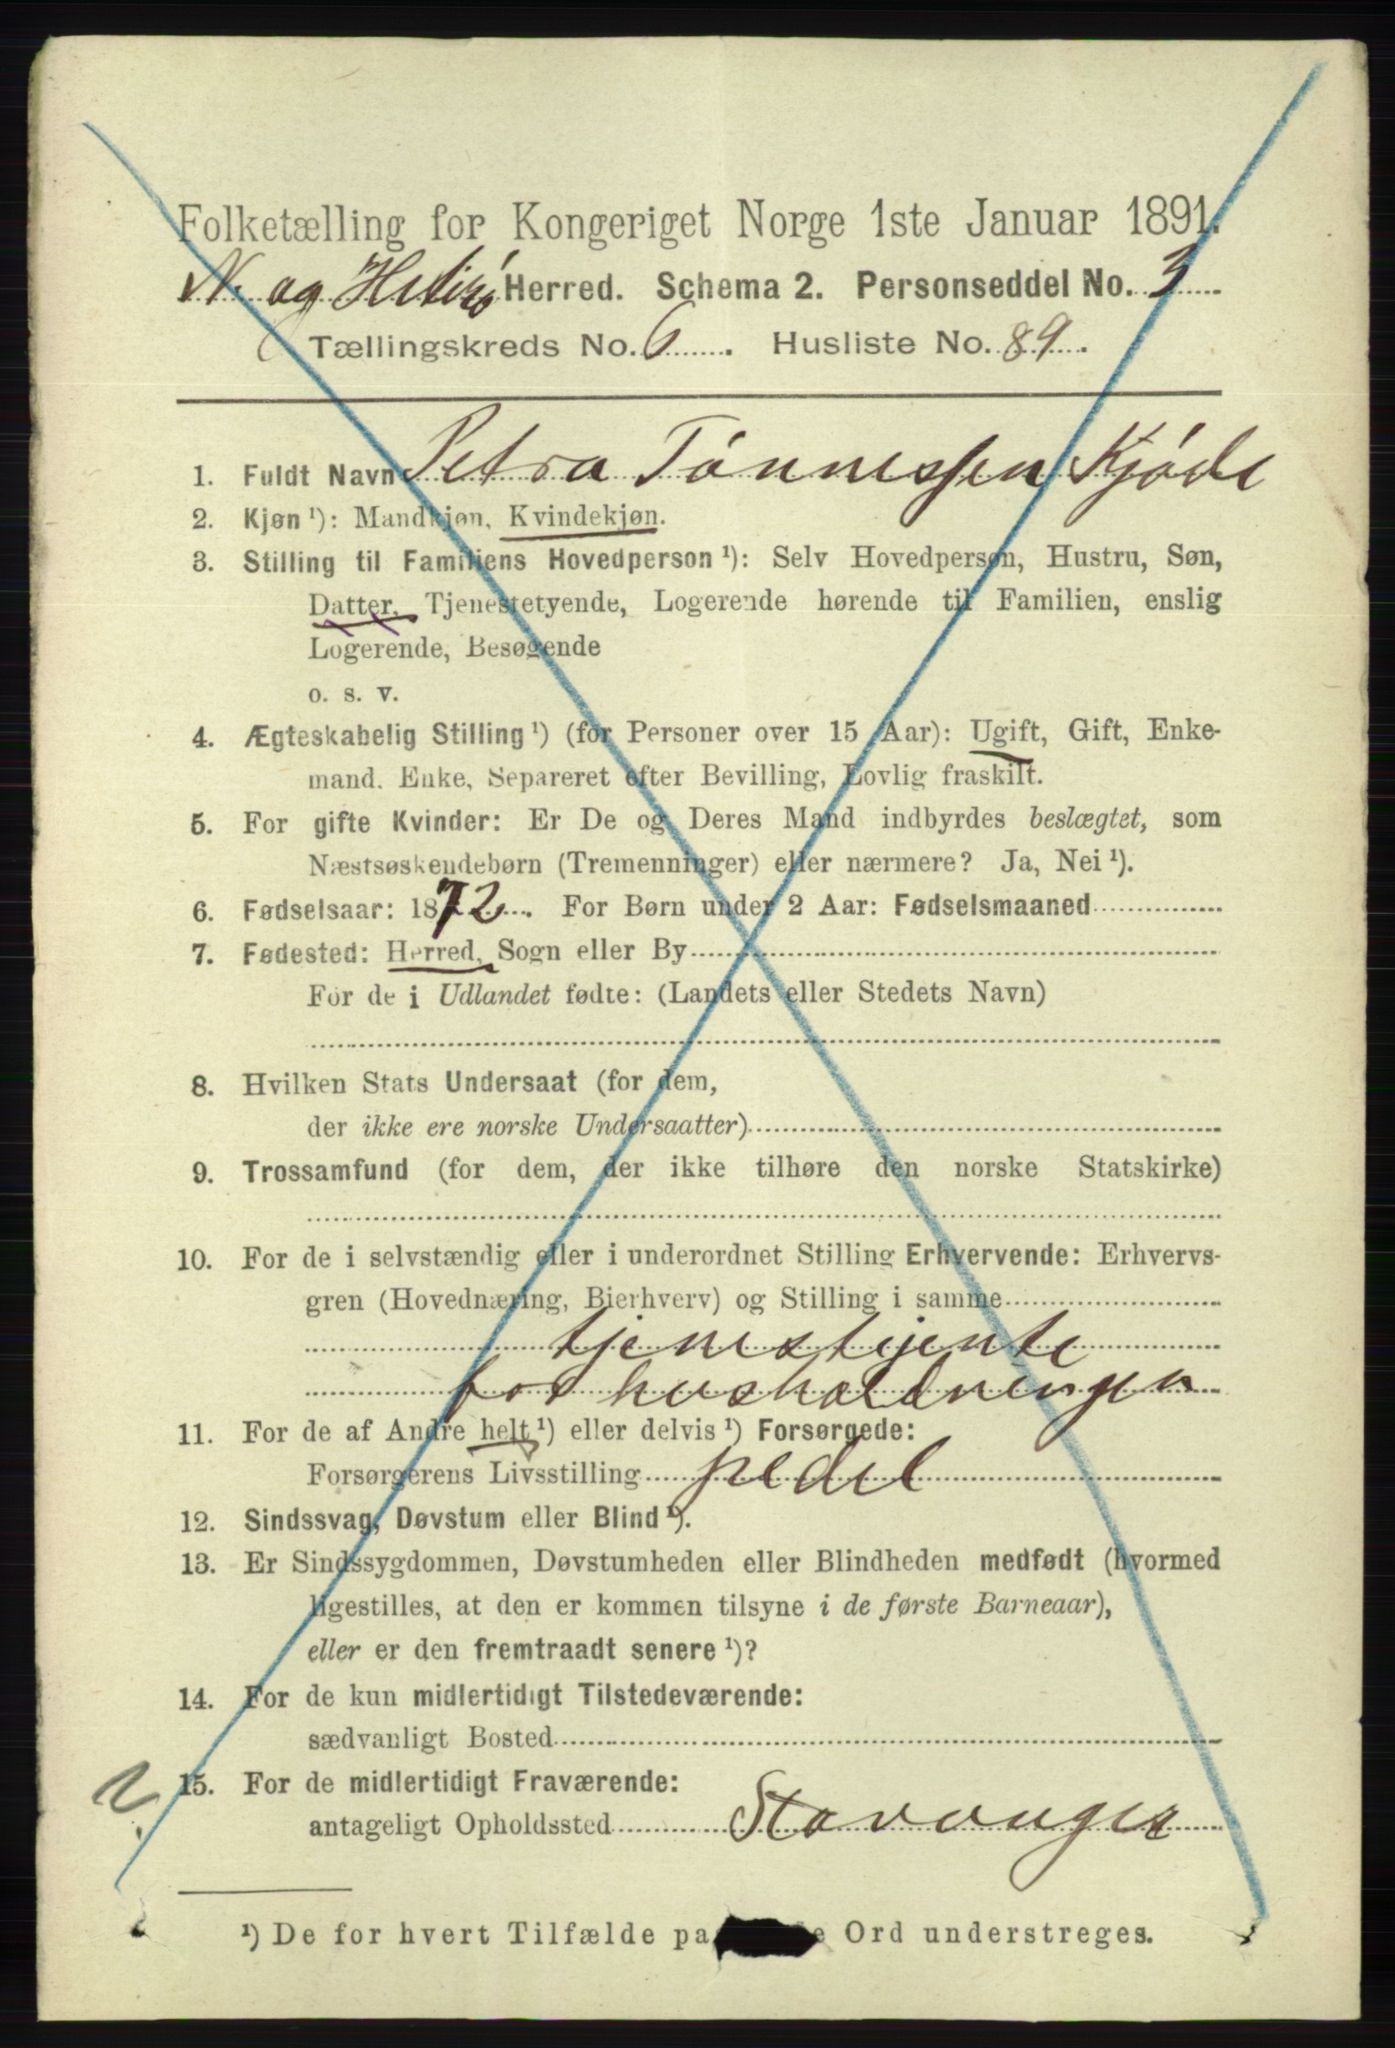 Folketælling for Kongeriget Norge 1ste Januar 1891.
N. og Hiterø Herred. Schema 2. Personseddel No. 3
Tællingskreds No. 6. Husliste No. 89.
1. Fuldt Navn Petra Tønnessen Kjøde
2. Kjøn ¹): Mandkjøn, Kvindekjøn.
3. Stilling til Familiens Hovedperson ¹): Selv Hovedperson, Hustru, Søn,
Datter, Tjenestetyende, Logerende hørende til Familien, enslig
Logerende, Besøgende
o. s. v.
4. Ægteskabelig Stilling ¹) (for Personer over 15 Aar): Ugift, Gift, Enke-
mand, Enke, Separeret efter Bevilling, Lovlig fraskilt.
5. For gifte Kvinder: Er De og Deres Mand indbyrdes beslægtet, som
Næstsøskendebørn (Tremenninger) eller nærmere? Ja, Nei ¹).
6. Fødselsaar: 1872. For Børn under 2 Aar: Fødselsmaaned
7. Fødested: Herred, Sogn eller By
For de i Udlandet fødte: (Landets eller Stedets Navn)
8. Hvilken Stats Undersaat (for dem,
der ikke ere norske Undersaatter)
9. Trossamfund (for dem, der ikke tilhøre den norske Statskirke)
10. For de i selvstændig eller i underordnet Stilling Erhvervende: Erhvervs-
gren (Hovednæring, Bierhverv) og Stilling i samme
tjenestjente
for husholdningen
11. For de af Andre helt ¹) eller delvis ¹) Forsørgede:
Forsørgerens Livsstilling pedel
12. Sindssvag, Døvstum eller Blind ¹).
13. Er Sindssygdommen, Døvstumheden eller Blindheden medfødt (hvormed
ligestilles, at den er kommen tilsyne i de første Barneaar),
eller er den fremtraadt senere ¹)?
14. For de kun midlertidigt Tilstedeværende:
sædvanligt Bosted
15. For de midlertidigt Fraværende:
antageligt Opholdssted Stavanger
¹) De for hvert Tilfælde Ord understreges.